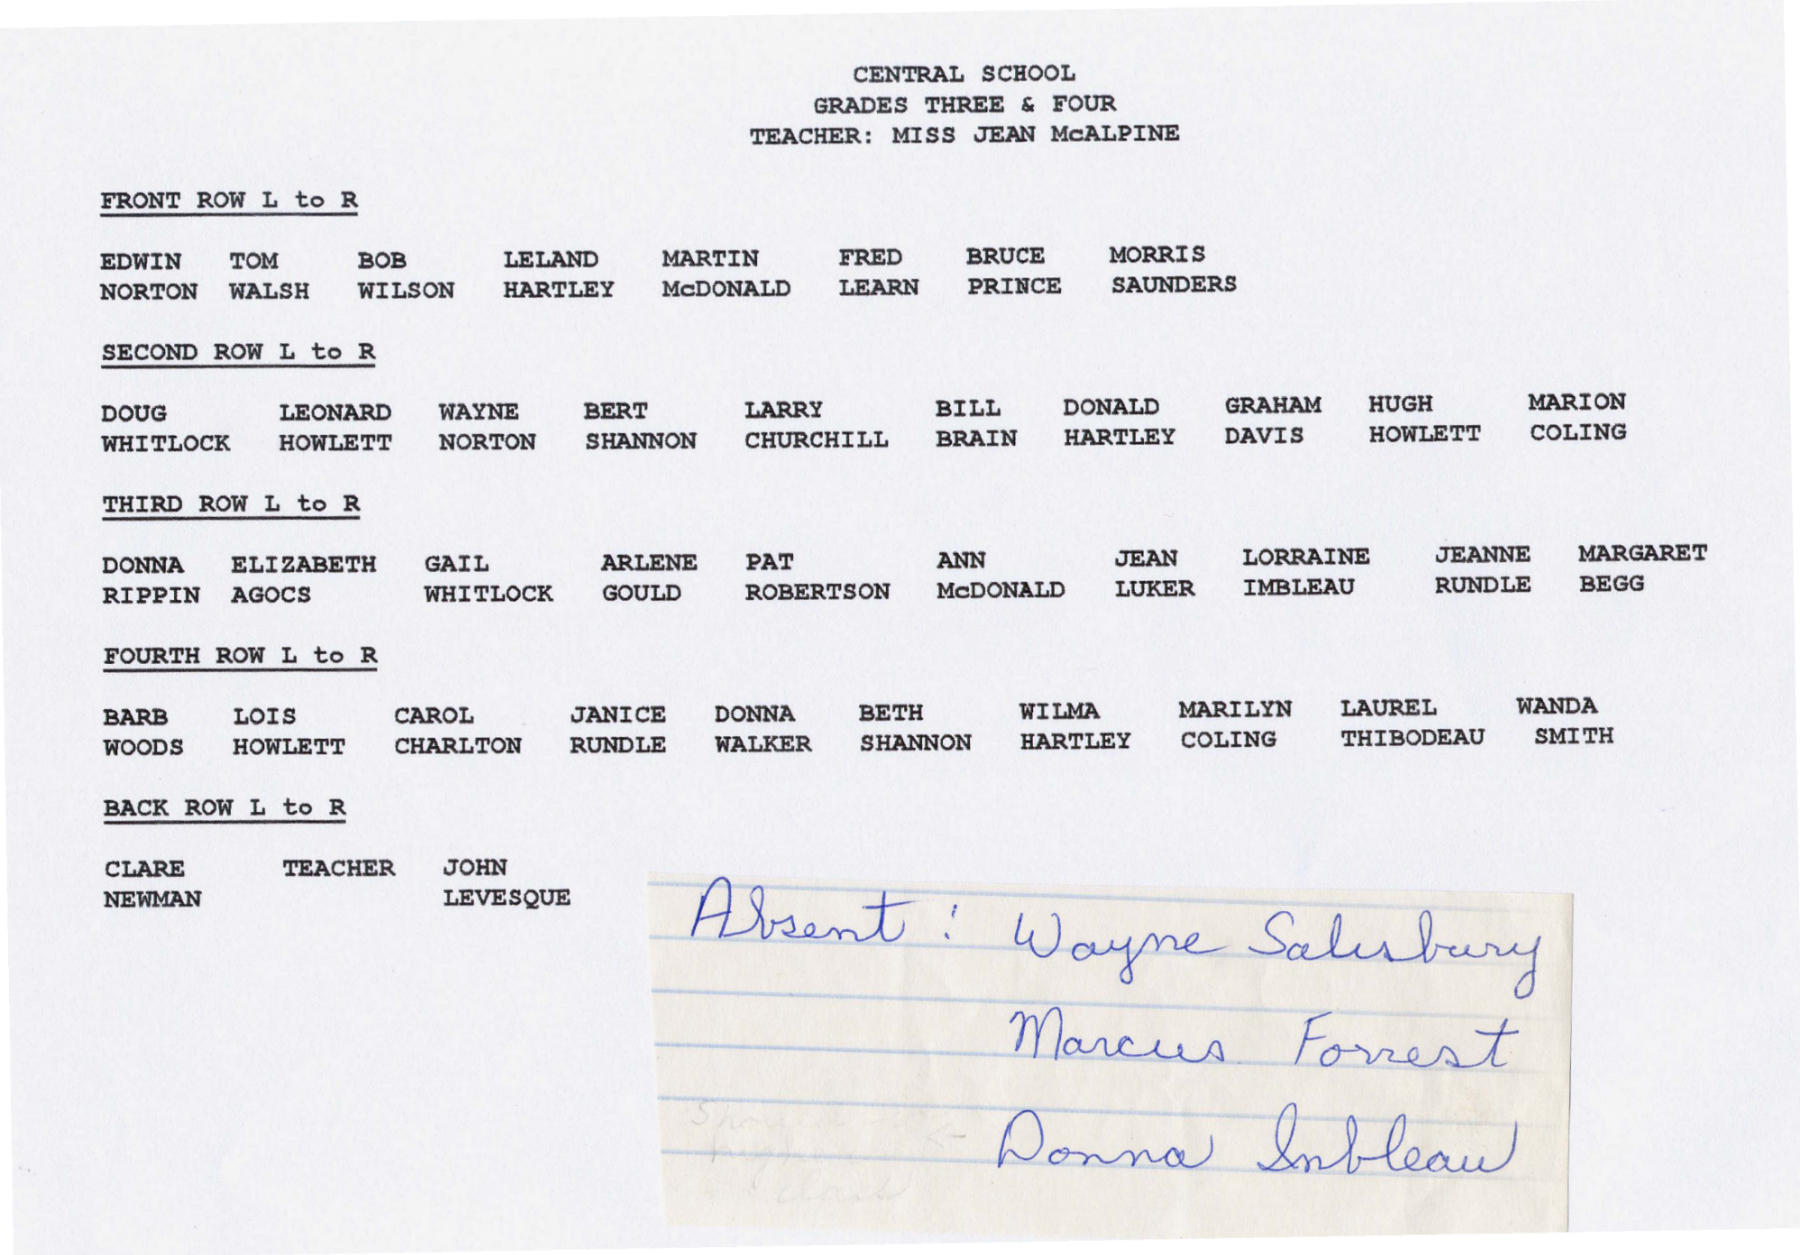 CENTRAL SCHOOL
GRADES THREE & FOUR
TEACHER: MISS JEAN McALPINE
FRONT ROW L to R
EDWIN TOM BOB LELAND MARTIN FRED BRUCE MORRIS
NORTON WALSH WILSON HARTLEY McDONALD LEARN PRINCE SAUNDERS
SECOND ROW L to R
DOUG LEONARD WAYNE BERT LARRY BILL DONALD GRAHAM HUGH MARION
WHITLOCK HOWLETT NORTON SHANNON CHURCHILL BRAIN HARTLEY DAVIS HOWLETT COLING
THIRD ROW L to R
DONNA ELIZABETH GAIL ARLENE PAT ANN JEAN LORRAINE JEANNE MARGARET
RIPPIN AGOCS WHITLOCK GOULD ROBERTSON McDONALD LUKER IMBLEAU RUNDLE BEGG
FOURTH ROW L to R
BARB LOIS CAROL JANICE DONNA BETH WILMA MARILYN LAUREL WANDA
WOODS HOWLETT CHARLTON RUNDLE WALKER SHANNON HARTLEY COLING THIBODEAU SMITH
BACK ROW L to R
CLARE TEACHER JOHN
NEWMAN LEVESQUE
Absent : Wayne Salisbury
Marcus Forrest
Donna Imbleau